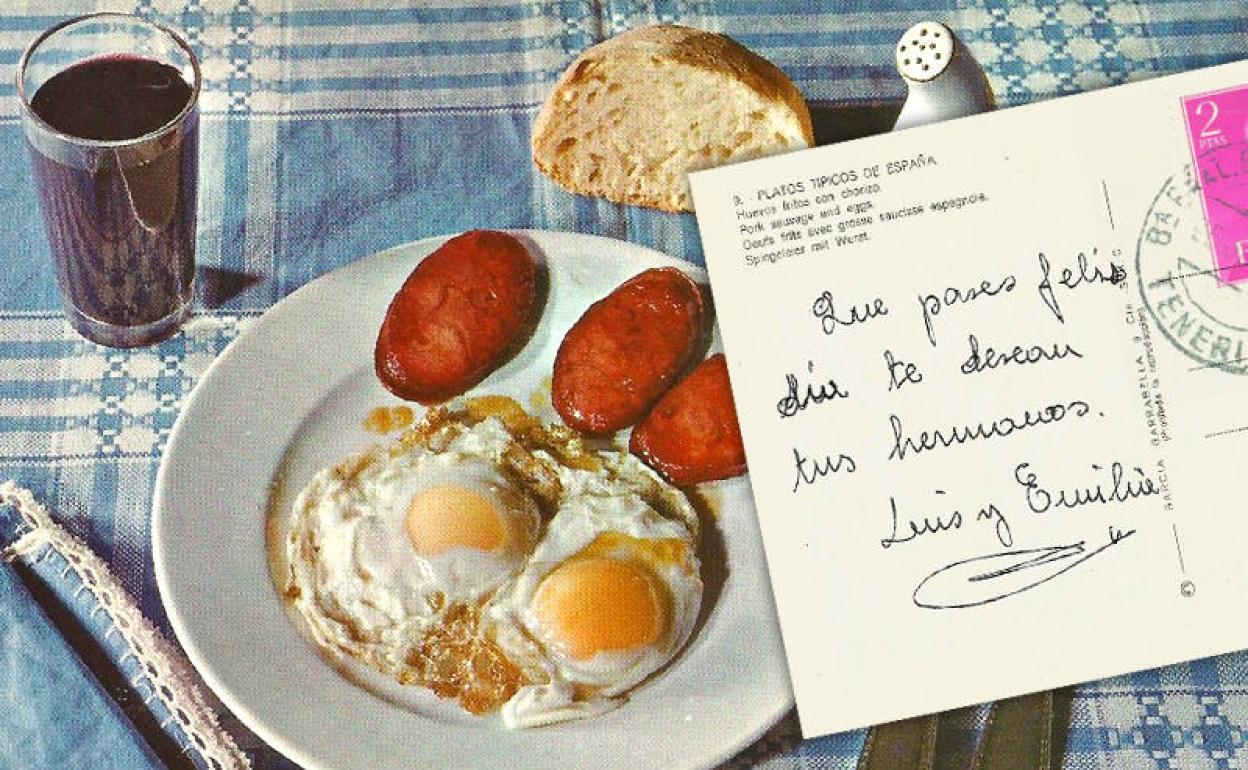 9. PLATOS TIPICOS DE ESPAÑA
Huevos fritos con chorizo.
Pork sausage and eggs.
Oeufs frits avec grosse saucisse espagnole.
Spiegeleier mit Wurst.
Que pases felis
día te desean
tus hermanos.
Luis y Emilia
GARCIA GARRABELLA y Cía
(Prohibida la reproducción)
©
2
PTAS
TENERI